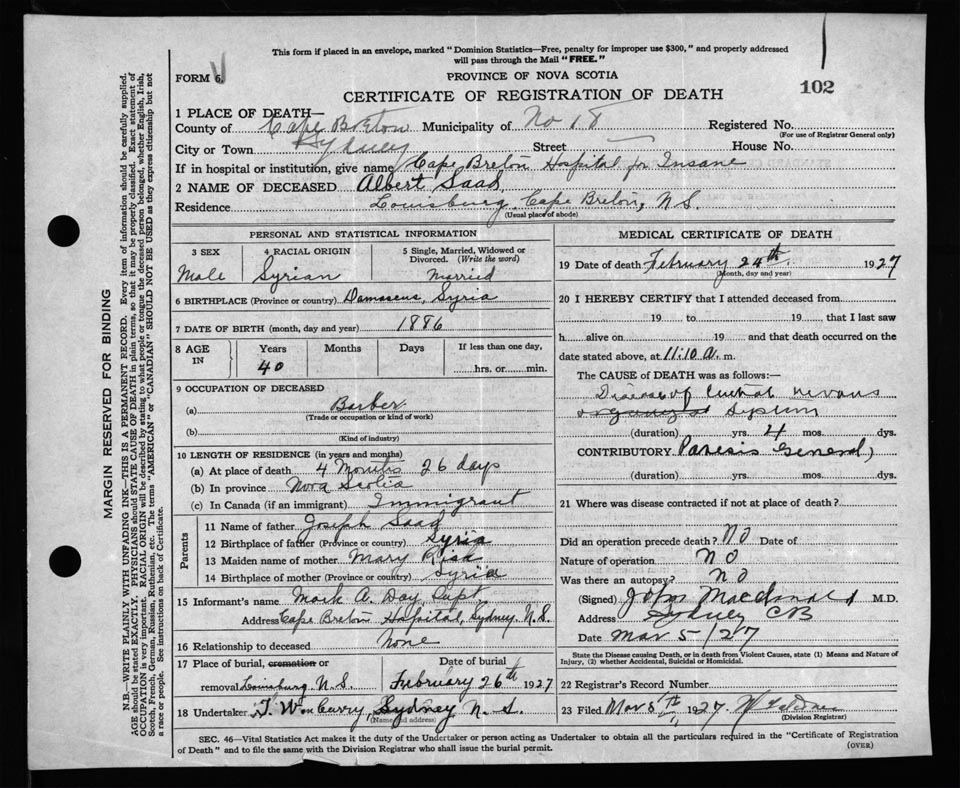 This form if placed in an envelope, marked "Dominion Statistics—Free, penalty for improper use $300," and properly addressed
will pass through the Mail "FREE."
FORM 6.
PROVINCE OF NOVA SCOTIA
102
CERTIFICATE OF REGISTRATION OF DEATH
1 PLACE OF DEATH—
County of Cape Breton Municipality of No 18 Registered No.
(For use of Registrar General only)
City or Town Sydney Street House No.
If in hospital or institution, give name Cape Breton Hospital for Insane
2 NAME OF DECEASED Albert Saad
Residence Louisburg, Cape Breton, N.S.
(Usual place of abode)
PERSONAL AND STATISTICAL INFORMATION
3 SEX 4 RACIAL ORIGIN 5 Single, Married, Widowed or
Divorced. (Write the word)
Male Syrian Married
6 BIRTHPLACE (Province or country) Damascus, Syria
7 DATE OF BIRTH (month, day and year) 1886
8 AGE IN Years Months Days If less than one day,
40 hrs. or min.
9 OCCUPATION OF DECEASED
(a) Barber
(Trade or occupation or kind of work)
(b)
(Kind of industry)
10 LENGTH OF RESIDENCE (in years and months)
(a) At place of death 4 Months 26 days
(b) In province Nova Scotia
(c) In Canada (if an immigrant) Immigrant
Parents
11 Name of father Joseph Saad
12 Birthplace of father (Province or country) Syria
13 Maiden name of mother Mary Risk
14 Birthplace of mother (Province or country) Syria
15 Informant's name Mark A. Day, Supt
Address Cape Breton Hospital, Sydney. N.S.
16 Relationship to deceased None
17 Place of burial, cremation or Date of burial
removal Louisburg N.S. February 26th 1927
18 Undertaker Sydney N.S.
(Name and address)
MEDICAL CERTIFICATE OF DEATH
19 Date of death February 24th. 1927
(Month, day and year)
20 I HEREBY CERTIFY that I attended deceased from
19 to 19 , that I last saw
h alive on 19 and that death occurred on the
date stated above, at 11:10 a. m.
The CAUSE of DEATH was as follows:—
Disease of Central nervous
System
(duration) yrs. 4 mos. dys.
CONTRIBUTORY Paresis General
(duration) yrs. mos. dys.
21 Where was disease contracted if not at place of death?
Did an operation precede death? NO Date of
Nature of operation NO
Was there an autopsy? NO
(Signed) John Macdonald M.D.
Address Sydney CB
Date Mar 5/27
State the Disease causing Death, or in death from Violent Causes, state (1) Means and Nature of
Injury, (2) whether Accidental, Suicidal or Homicidal.
22 Registrar's Record Number
23 Filed 1927
(Division Registrar)
SEC. 46—Vital Statistics Act makes it the duty of the Undertaker or person acting as Undertaker to obtain all the particulars required in the "Certificate of Registration
of Death" and to file the same with the Division Registrar who shall issue the burial permit.
(OVER)
MARGIN RESERVED FOR BINDING
N.B.—WRITE PLAINLY WITH UNFADING INK—THIS IS A PERMANENT RECORD. Every item of information should be carefully supplied.
AGE should be stated EXACTLY. PHYSICIANS should STATE CAUSE OF DEATH in plain terms, so that it may be properly classified. Exact statement of
OCCUPATION is very important. RACIAL ORIGIN will be described by stating to what people or tongue the deceased person belonged, whether English, Irish,
Scotch, French, German, Russian, Ruthenian, etc. The terms "AMERICAN" or "CANADIAN" SHOULD NOT BE USED as they express citizenship but not
a race or people. See instructions on back of Certificate.